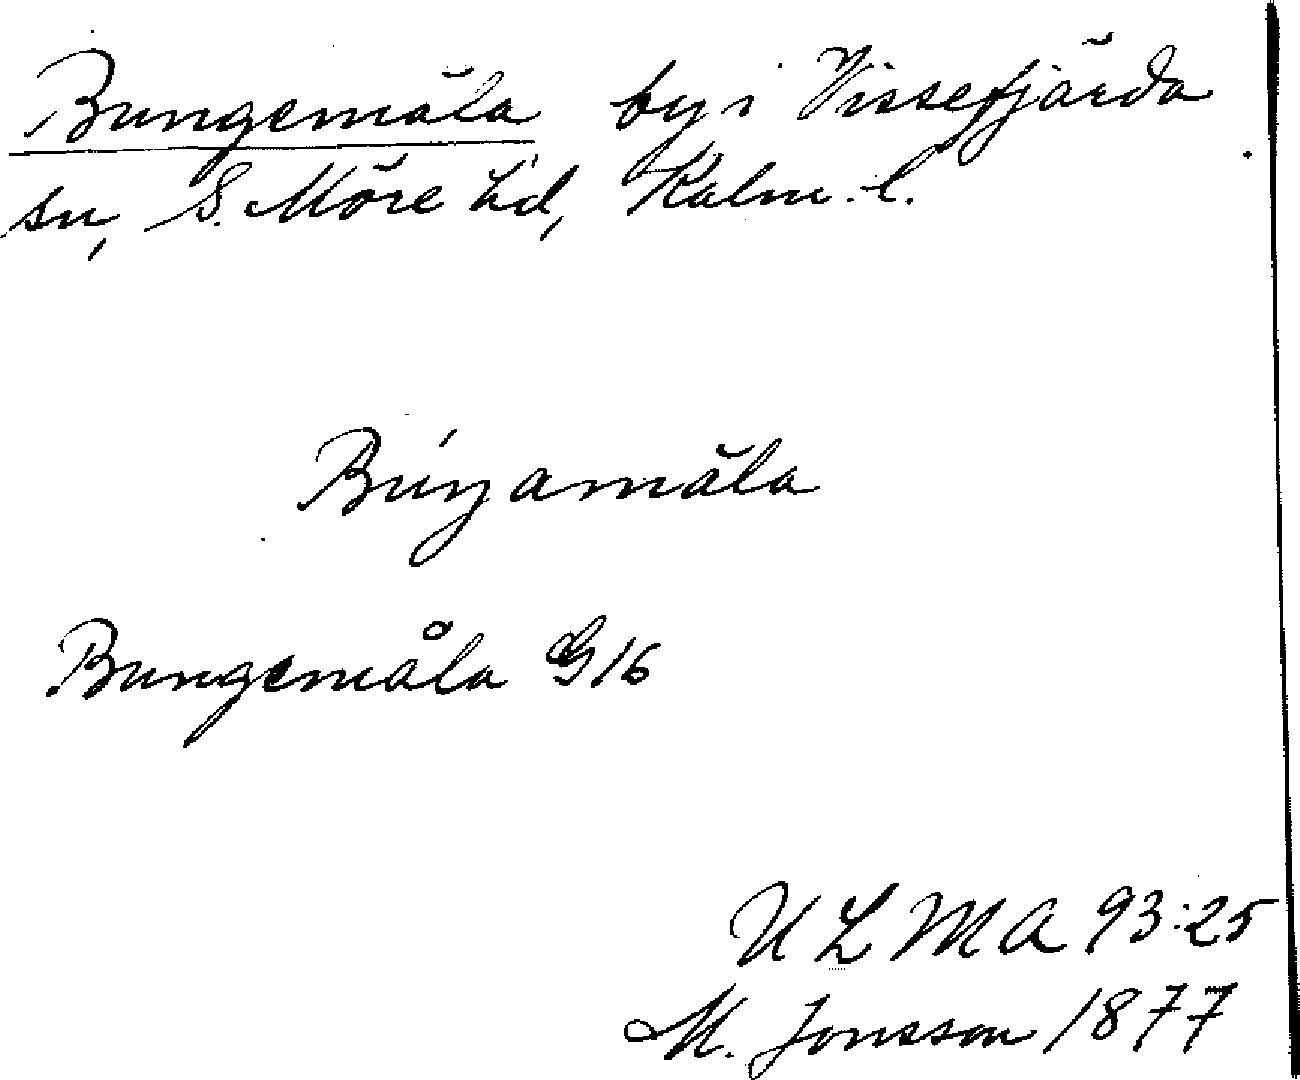 Bungemåla by i Vissefjärda
sn, S. Möre hd, Kalm. l.
Búŋamåla
Bungemåla G16
ULMA 93:25
M. Jonsson 1877